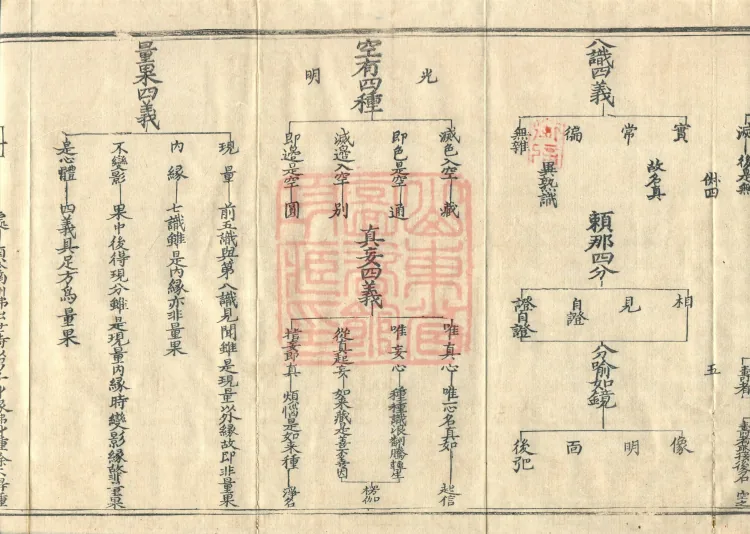 八識四義
實
常
徧
無雜
故名真
異熟識
賴那四分
相
見
自證
證自證
分喻如鏡
像
明
面
後弝
五
光明
空有四種
滅色入空 戲
即色是空 通
滅邊入空 別
即邊是空 圓
真妄四義
唯真心 唯一心名真如 起信
唯妄心 種種識浪
從真起妄 如來藏是善不善因 楞伽
指妄即真 煩惱是如來種 淨名
量果四義
現量 前五識與第八識見聞雖是現量以外緣故即非量果
內緣 七識雖是內緣亦非量果
不變影 果中後得現分雖是現量內緣時變影緣故非量果
是心體 四義具足方為量果